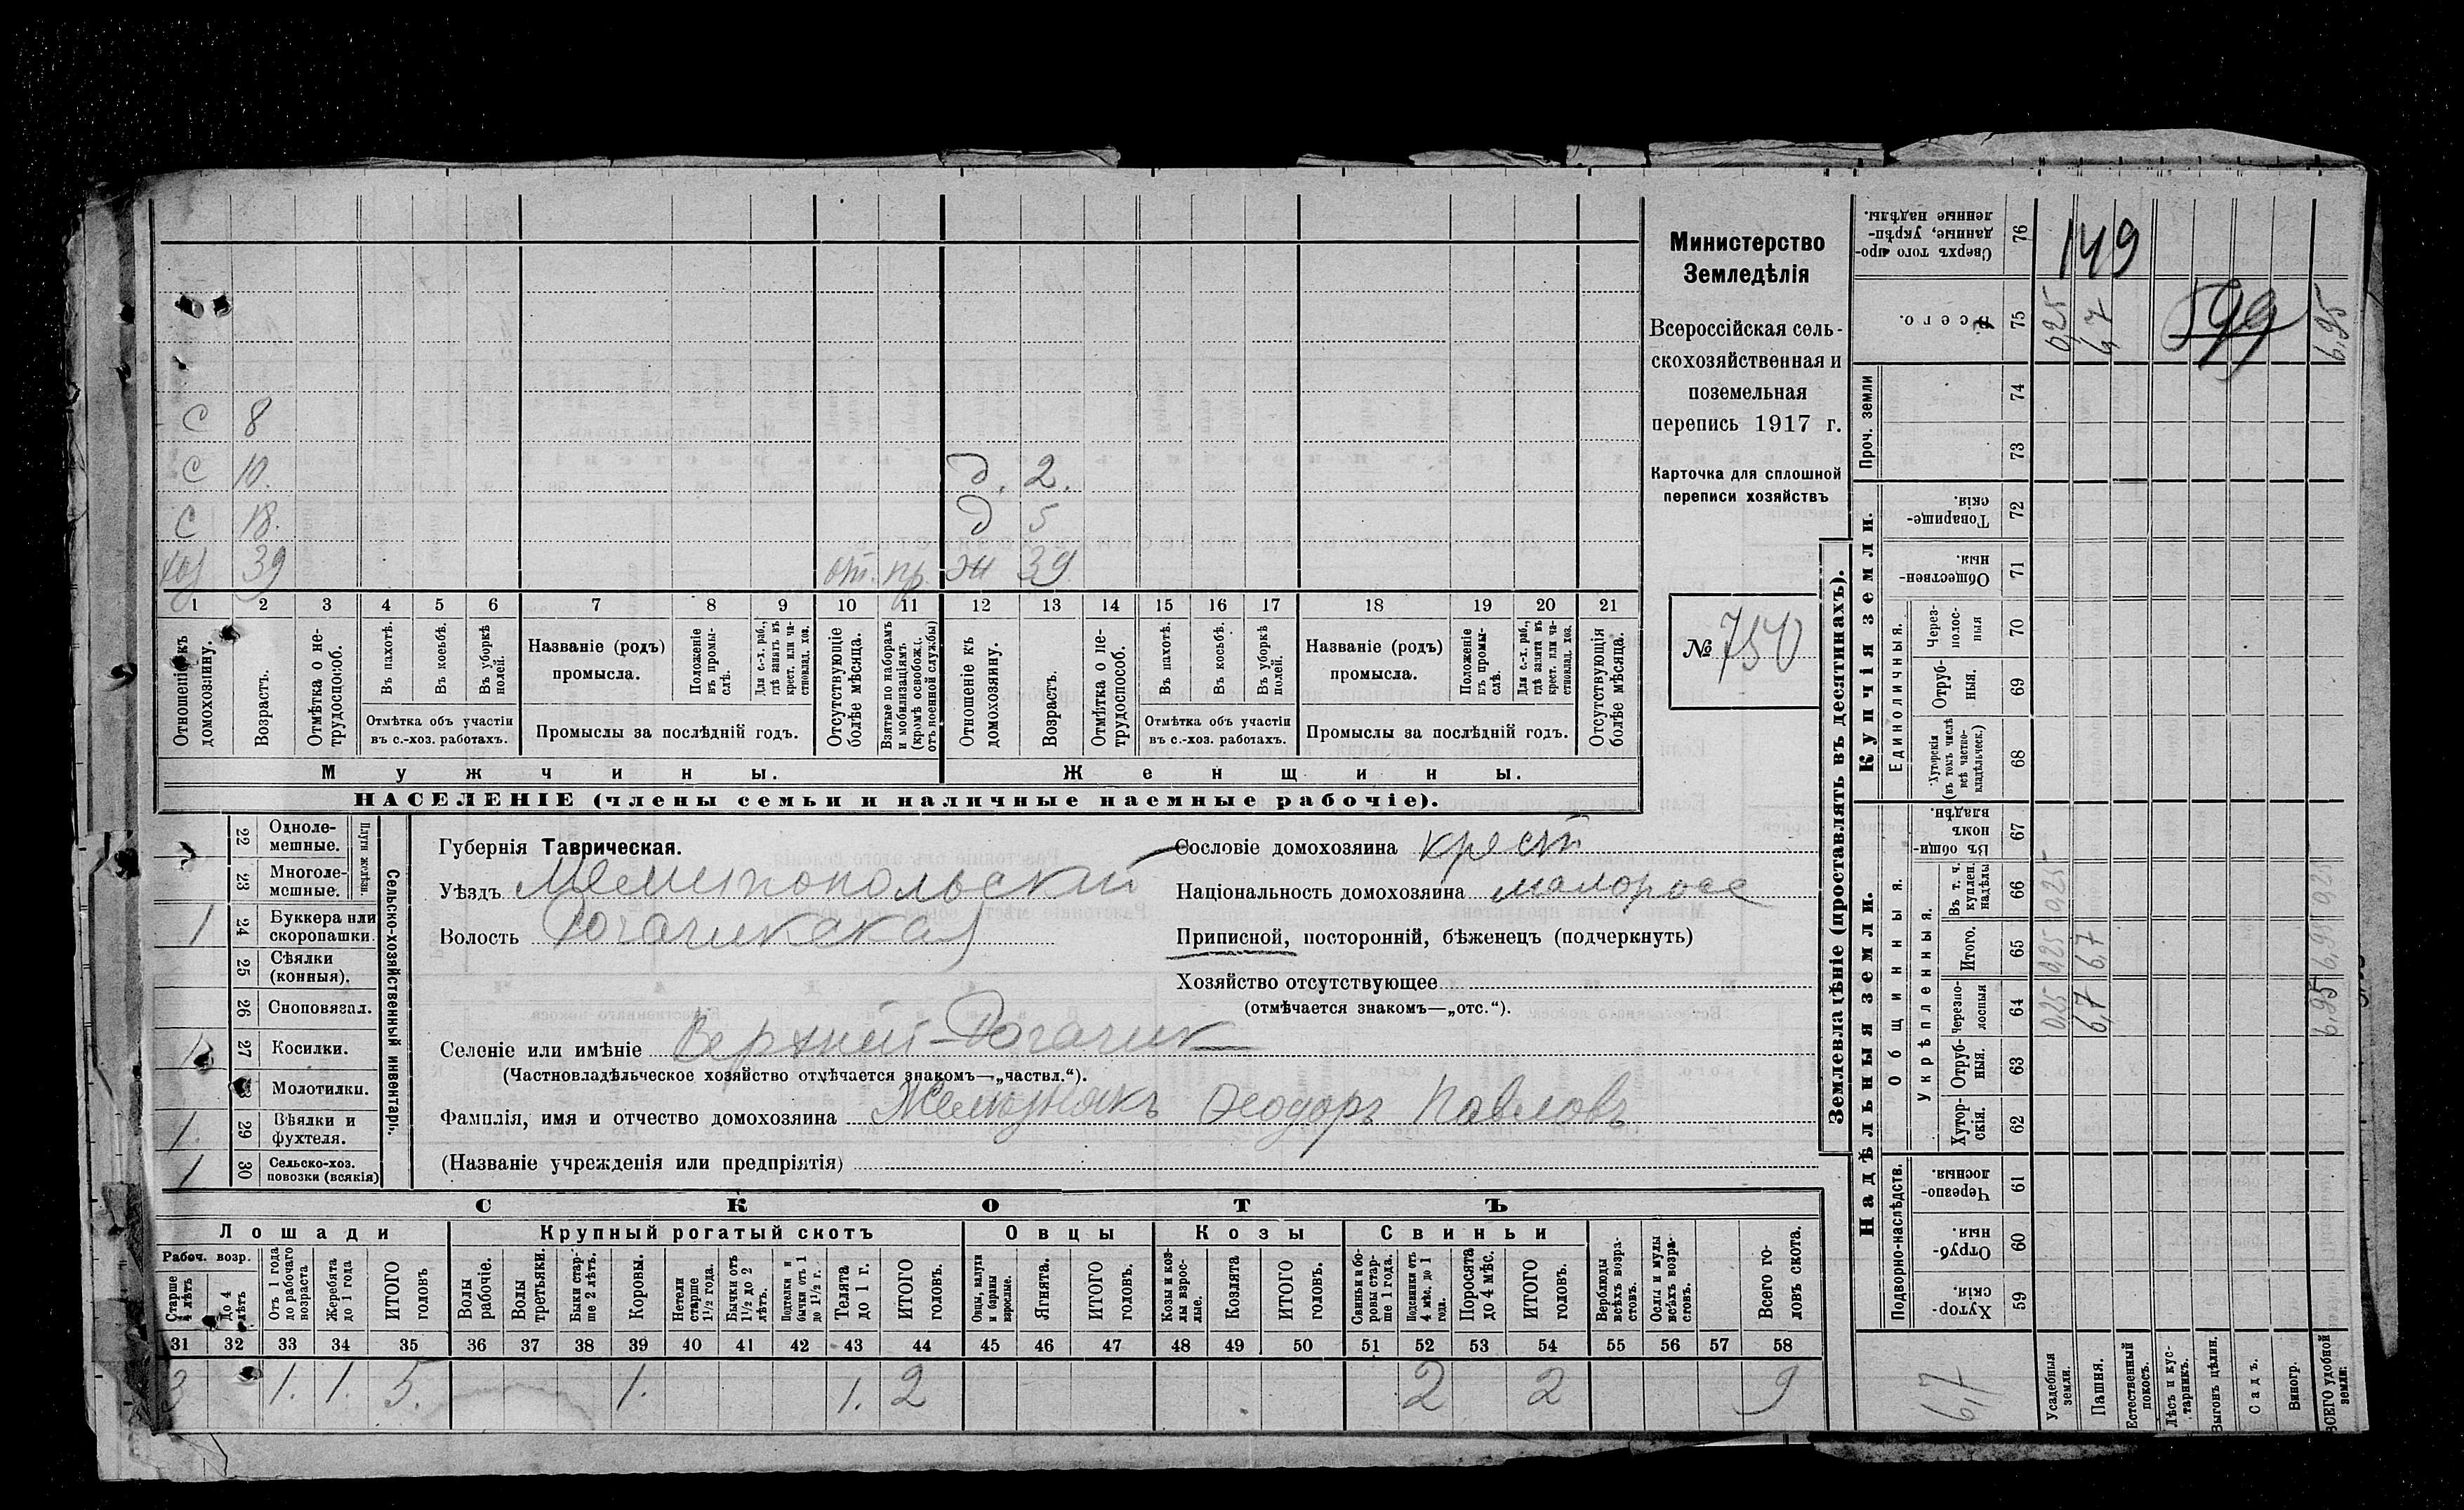 С 8
С 10. д. 2.
С 18. д 5
хоз 39 от. пр. ж 39
1 2 3 4 5 6 7 8 9 10 11 12 13 14 15 16 17 18 19 20 21
Отношеніе къ домохозяину.
Возрастъ.
Отмѣтка о не-трудоспособ.
Въ пахотѣ.
Въ косьбѣ.
Въ уборкѣ полей.
Отмѣтка объ участіи въ с.-хоз. работахъ.
Названіе (родъ) промысла.
Положеніе въ промы-слѣ.
Для с.-х. раб., гдѣ занятъ въ крест. или ча-стновлад. хоз.
Промыслы за послѣдній годъ.
Отсутствующіе болѣе мѣсяца.
Взятые по наборамъ и мобилизаціямъ (кромѣ освобожд. отъ военной службы)
Отношеніе къ домохозяину.
Возрастъ.
Отмѣтка о не-трудоспособ.
Въ пахотѣ.
Въ косьбѣ.
Въ уборкѣ полей.
Отмѣтка объ участіи въ с.-хоз. работахъ.
Названіе (родъ) промысла.
Положеніе въ промы-слѣ.
Для с.-х. раб., гдѣ занята въ крест. или ча-стновлад. хоз.
Промыслы за послѣдній годъ.
Отсутствующія болѣе мѣсяца.
Мужчины. Женщины.
НАСЕЛЕНІЕ (члены семьи и наличные наемные рабочіе).
Министерство
Земледѣлія
Всероссійская сель-
скохозяйственная и
поземельная
перепись 1917 г.
Карточка для сплошной
переписи хозяйствъ
№ 750
22 Одноле-мешные.
23 Многоле-мешные.
1 24 Буккера или скоропашки.
25 Сѣялки (конныя).
26 Сноповязал.
1 27 Косилки.
Молотилки.
1. 29 Вѣялки и фухтеля.
1 30 Сельско-хоз. повозки (всякія)
Сельско-хозяйственный инвентарь.
Губернія Таврическая.
Уѣздъ Мелитопольскій
Волость Рогачикская
Сословіе домохозяина крест
Національность домохозяина малоросс
Приписной, посторонній, бѣженецъ (подчеркнуть)
Хозяйство отсутствующее
(отмѣчается знакомъ—„отс.“).
Селеніе или имѣніе Верхній-Рогачик
(Частновладѣльческое хозяйство отмѣчается знакомъ—„частвл.“).
Фамилія, имя и отчество домохозяина Желѣзнякъ Ѳеодоръ Павловъ
(Названіе учрежденія или предпріятія)
СКОТЪ
Лошади Крупный рогатый скотъ Овцы Козы Свиньи
Рабоч. возр.
Старше 4 лѣтъ
До 4 лѣтъ
Отъ 1 года до рабочаго возраста
Жеребята до 1 года
ИТОГО головъ
Волы рабочіе.
Волы третьяки.
Быки стар-ше 2 лѣтъ.
Коровы.
Нетели старше 1½ года.
Бычки отъ 1½ до 2 лѣтъ.
Подтелки и бычки отъ 1 до 1½ г.
Телята до 1 г.
ИТОГО головъ.
Овцы, валухи и бараны взрослые.
Ягнята.
ИТОГО головъ.
Козы и коз-лы взрос-лые.
Козлята
ИТОГО головъ.
Свиньи и бо-ровы стар-ше 1 года.
Подсвинки отъ 4 мѣс. до 1 года.
Поросята до 4 мѣс.
ИТОГО головъ.
Верблюды всѣхъ возра-стовъ.
Ослы и мулы всѣхъ возра-стовъ.
Всего го-ловъ скота.
31 32 33 34 35 36 37 38 39 40 41 42 43 44 45 46 47 48 49 50 51 52 53 54 55 56 57 58
3 1. 1. 5. 1. 1. 2 2 2 9
Землевладѣніе (проставлять въ десятинахъ).
Сверхъ того про-данные, укрѣп-ленные надѣлы. 76 149
Всего. 75 0,25 6,7 599 6,95
Купчія земли.
Проч. земли
74
73
Товарище-скія. 72
Обществен-ныя 71
Единоличныя.
Через-полос-ныя 70
Отруб-ныя. 69
Хуторскія (въ томъ числѣ всѣ частно-владѣльческ.) 68
Надѣльныя земли.
Общинныя.
Въ общи-номъ владѣн. 67
Укрѣпленныя.
Въ т. ч. куплен. надѣлы 66 0,25 0,25
Итого. 65 0,25 6,7 6,95
Черезпо-лосныя 64 0,25 6,7 6,95
Отруб-ныя. 63
Хутор-скія. 62
Подворно-наслѣдств.
Черезпо-лосныя. 61
Отруб-ныя. 60
Хутор-скія. 59
6,7
Усадебныя земли.
Пашня.
Естественный покосъ.
Лѣсъ и кус-тарникъ.
Выгонъ цѣлин.
Садъ.
Виногр.
ВСЕГО удобной земли: